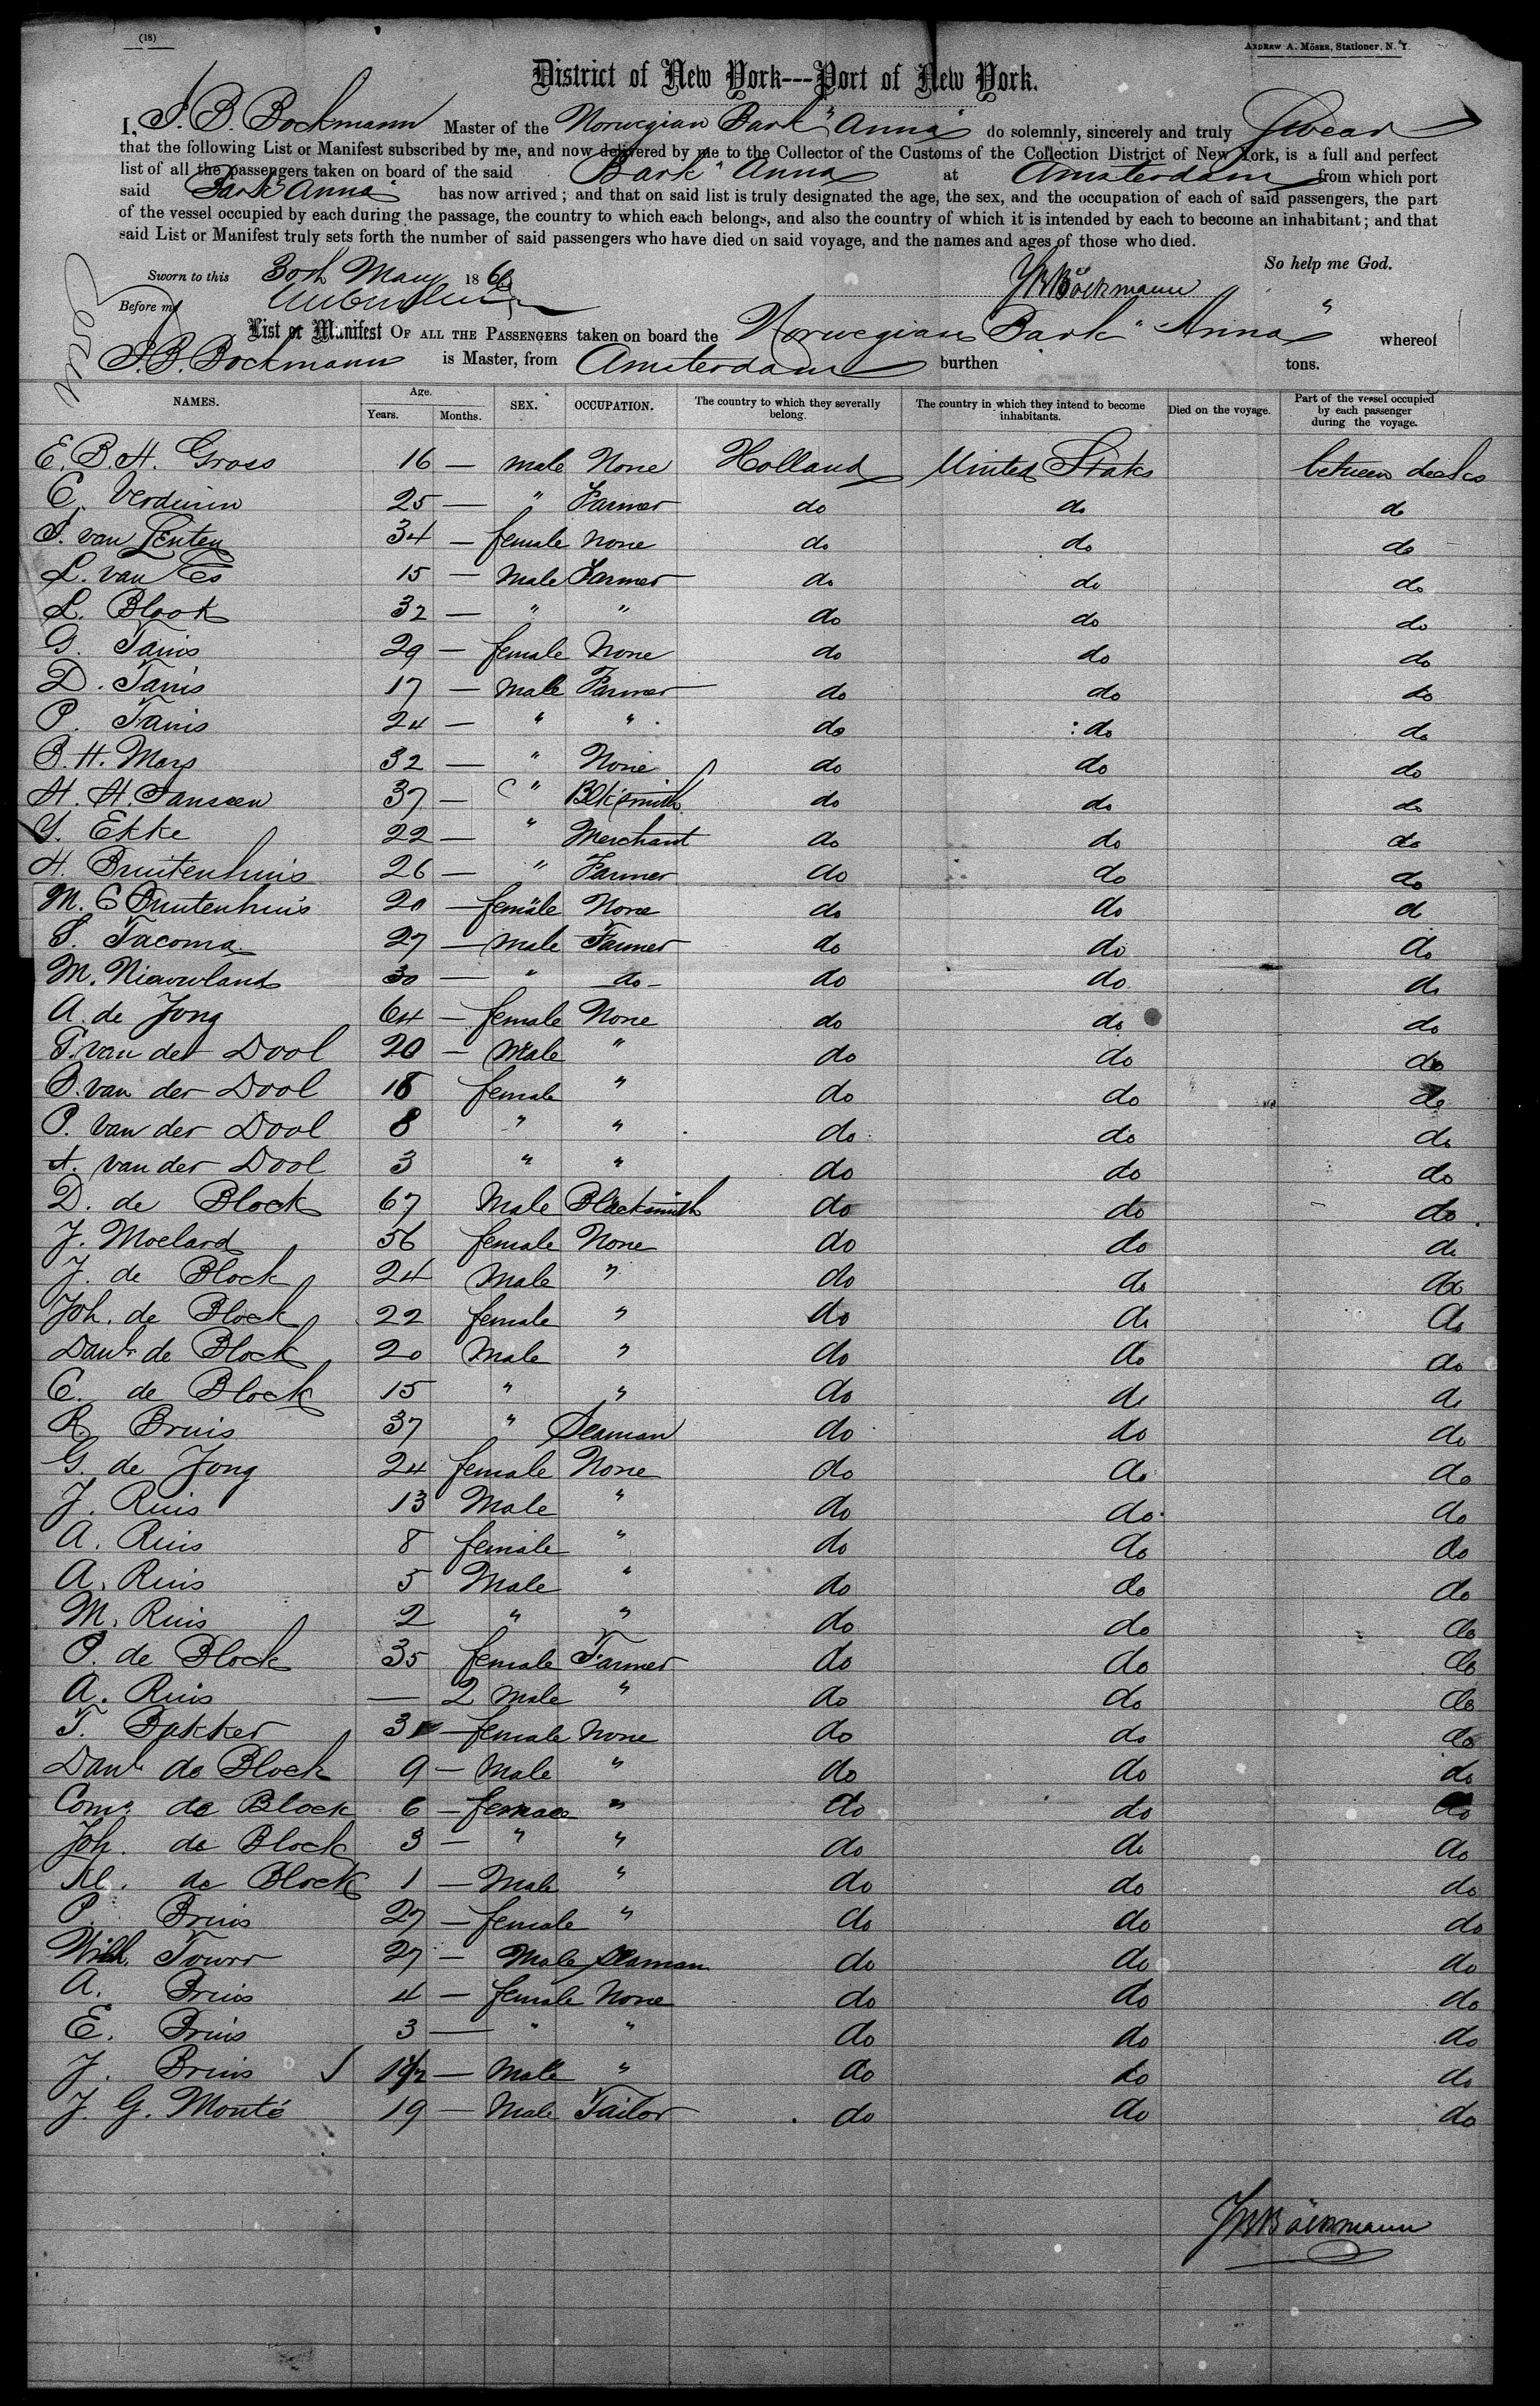 (18)
ANDREW A. MÖSER, Stationer, N. Y.
District of New York---Port of New York.
I, J. B. Bockmann Master of the Norwegian Bark "Anna" do solemnly, sincerely and truly Swear
that the following List or Manifest subscribed by me, and now delivered by me to the Collector of the Customs of the Collection District of New York, is a full and perfect
list of all the passengers taken on board of the said Bark "Anna at Amsterdam from which port
said Bark "Anna" has now arrived; and that on said list is truly designated the age, the sex, and the occupation of each of said passengers, the part
of the vessel occupied by each during the passage, the country to which each belongs, and also the country of which it is intended by each to become an inhabitant; and that
said List or Manifest truly sets forth the number of said passengers who have died on said voyage, and the names and ages of those who died.
So help me God.
Sworn to this 30th May 186
JBBöckmann
Before me
List or Manifest OF ALL THE PASSENGERS taken on board the Norwegian Bark "Anna" whereof
J. B. Bockmann is Master, from Amsterdam burthen tons.
NAMES. Age. Years. Months. SEX. OCCUPATION. The country to which they severally belong. The country in which they intend to become inhabitants. Died on the voyage. Part of the vessel occupied by each passenger during the voyage.
E. B. H. Gross 16 — male None Holland United States between decks
C. Verduin 25 — " Farmer do do do
S. van Lenten 34 — female None do do do
L. van Es 15 — Male Farmer do do do
L. Blook 32 — " " do do do
G. Tanis 29 — female None do do do
D. Tanis 17 — Male Farmer do do do
P. Tanis 24 — " " do do do
B. H. Mars 32 — " None do do do
H. H. Janseen 37 — " Blksmith do do do
Y. Ekke 22 — " Merchant do do do
H. Bruitenhuis 26 — " Farmer do do do
M. C Bruitenhuis 20 — female None do do do
S. Tacoma 27 — Male Farmer do do do
M. Nieuwland 30 — " do do do do
A. de Jong 64 — female None do do do
T. van der Dool 20 — Male " do do do
B. van der Dool 18 female " do do do
P. van der Dool 8 " " do do do
A. van der Dool 3 " " do do do
D. de Block 67 Male Blacksmith do do do
J. Moelard 56 female None do do do
J. de Block 24 Male " do do do
Joh. de Block 22 female " do do do
Danl. de Block 20 Male " do do do
C. de Block 15 " " do do do
R. Bruis 37 " Seaman do do do
G. de Jong 24 female None do do do
J. Ruis 13 Male " do do do
A. Ruis 8 female " do do do
A. Ruis 5 Male " do do do
M. Ruis 2 " " do do do
P. de Block 35 female Farmer do do do
A. Ruis — 2 Male " do do do
T. Bakker 31 — female None do do do
Danl. de Block 9 — Male " do do do
Corn. de Block 6 — female " do do do
Joh. de Block 3 — " " do do do
Kl. de Block 1 — Male " do do do
P. Bruis 27 — female " do do do
Wilh. Tourr 27 — Male Seaman do do do
A. Bruis 4 — female None do do do
E. Bruis 3 — " " do do do
J. Bruis 1 1/2 — Male " do do do
J. G. Monté 19 — Male Tailor do do do
JBBöckmann